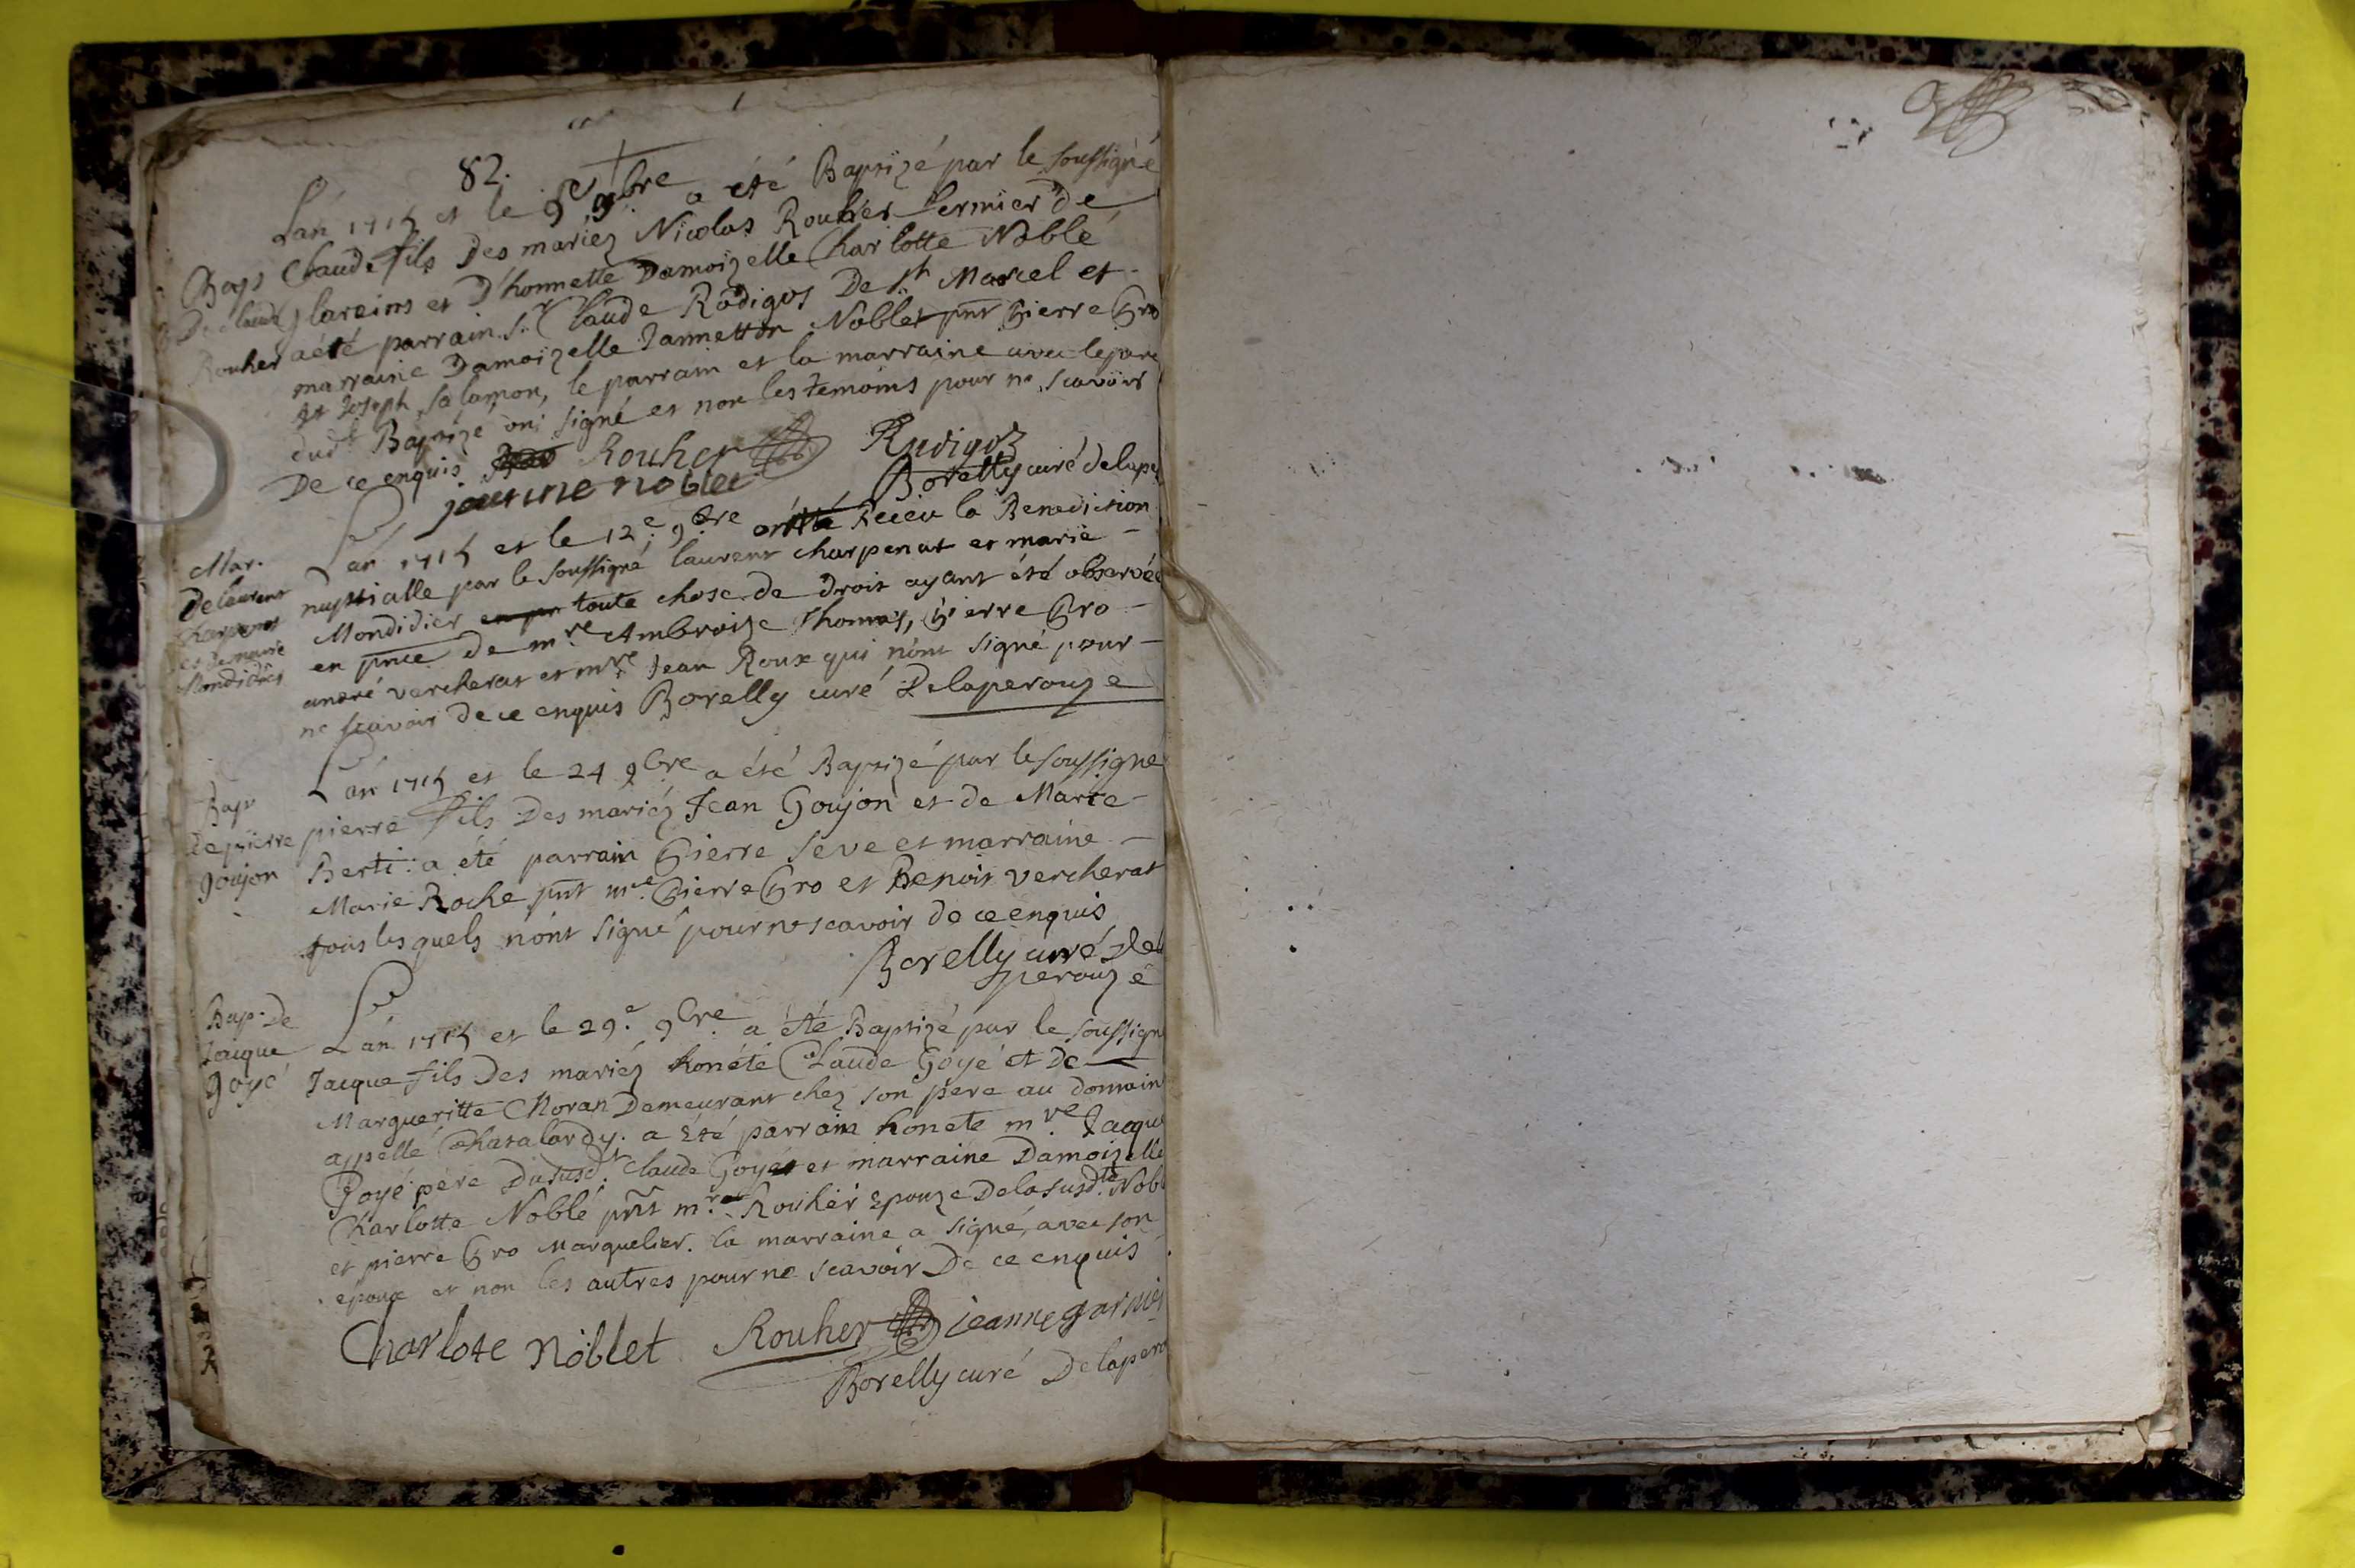 82.
L'an 1715 et le 9e 9bre a été Baptizé par le soussigné
Bap Claude fils Des mariéz Nicolas Rouher fermier de
De Claude glareins et D'honnette Damoizelle Charlotte Noblé
Rouher a été parrain Sr Claude Rodigos De St Marcel et
marraine Damoizelle Jannetton Noblet pnt Pierre Gro
et Joseph Salamon, le parrain et la marraine avec le pere
dudt Baptizé ont signé et non les temoins pour ne scavoir
De ce enquis Rouher Rudigoz
jeanne noblet Borelly curé delape
Mar. L'an 1715 et le 12e 9bre Receu la Benediction
De laurent nuptialle par le soussigné laurent charpenat et marie
charpenat Mondidier toute chose de droit ayant été observée
et de marie en pnce de mre Ambroize Thomas, Pierre Gro
Mondidier andré vercherat et mre Jean Roux qui n'ont signé pour
ne scavoir de ce enquis Borelly curé Delaperouze
L'an 1715 et le 24 9bre a été Baptizé par le soussigné
Bap pierre fils Des mariéz Jean Goujon et de Marie
De pierre Berti: a été parrain Pierre Seve et marraine
goujon Marie Roche pnt mre Pierre Gro et Benoit vercherat
tous lesquels n'ont signé pour ne scavoir de ce enquis
Borelly curé De la
perouze
Bap. De L'an 1715 et le 29e 9bre a été Baptizé par le soussigné
Jacque Jacque fils Des mariéz honété Claude Goyé et De
goyé Margueritte Moran Demeurant chez son pere au domain
appellé Chatalardy. a été parrain honete mre Jacque
Goyé pere Dusudt Claude Goyé et marraine Damoizelle
Charlotte Noblé pnt mr Rouher Epouze Delasusdte Noble
et pierre Gro Marquelier. la marraine a signé, avec son
epoux et non les autres pour ne scavoir De ce enquis
Charlote Noblet Rouher jeanne garnier
Borelly curé Delapero